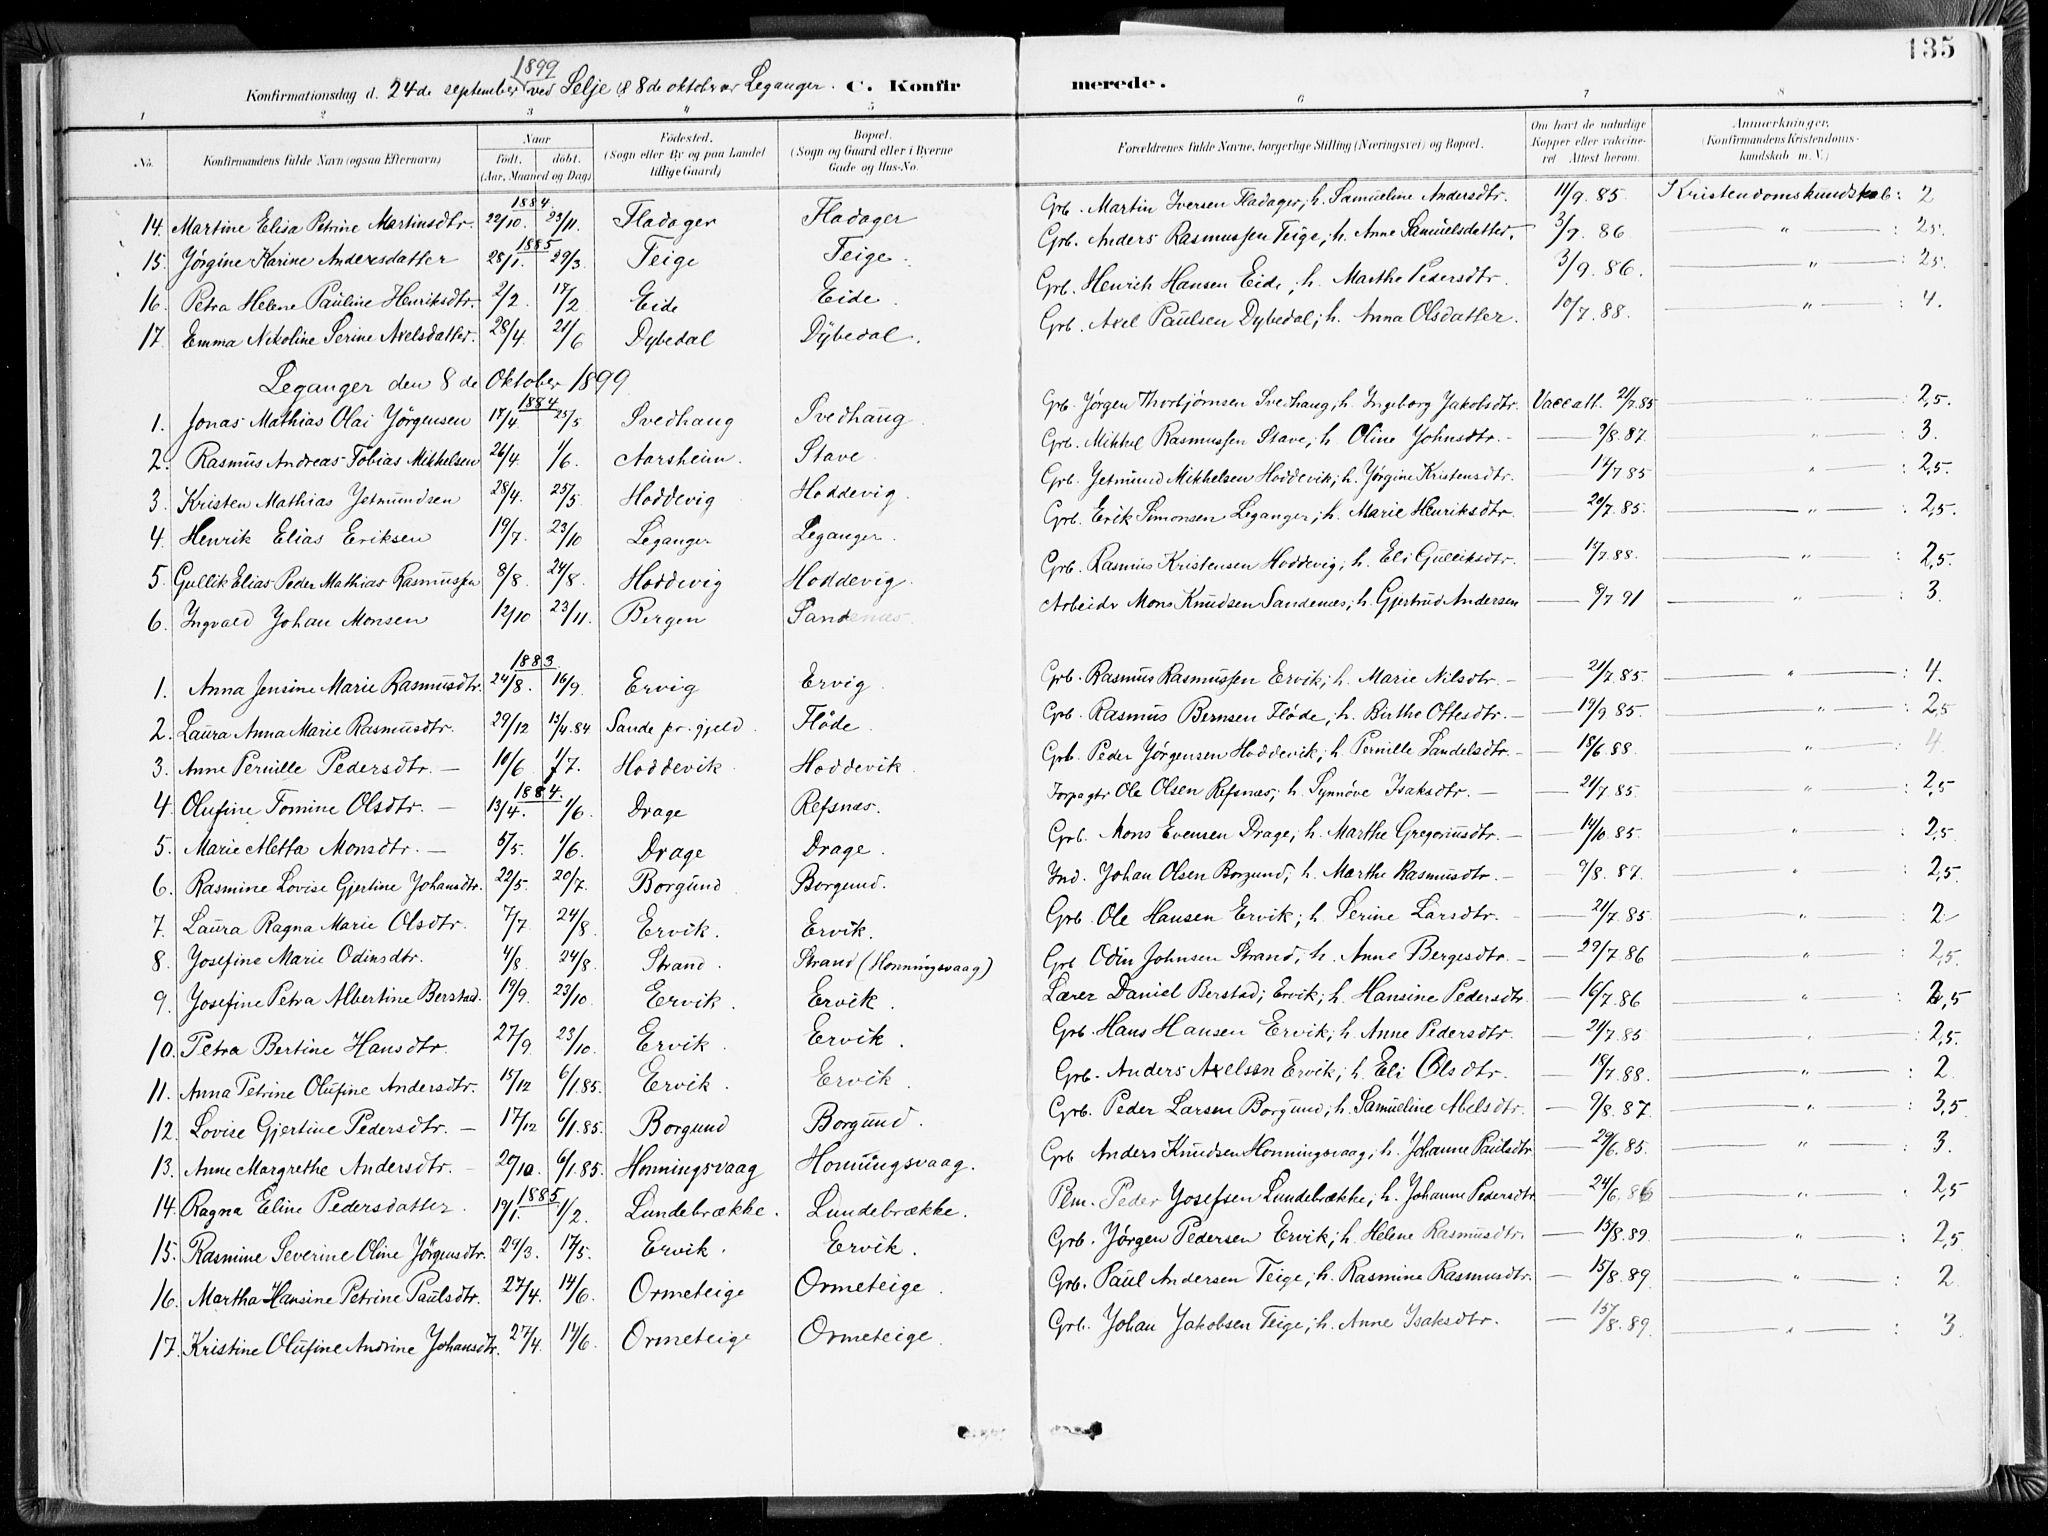 135
Konfirmationsdag d. 24de september 1899 ved Selje & 8de oktober Leganger. C. Konfirmerede.
1 2 3 4 5 6 7 8
No. Konfirmandens fulde Navn (ogsaa Efternavn) Naar Født. døbt. (Aar, Maaned og Dag) Fødested. (Sogn eller By og paa Landet tillige Gaard) Bopæl. (Sogn og Gaard eller i Byerne Gade og Hus-No. Forældrenes fulde Navne, borgerlige Stilling (Næringsvei) og Bopæl. Om havt de naturlige Kopper eller vaccineret Attest herom. Anmærkninger. (Konfirmandens Kristendomskundskab m. V.)
1884.
14. Martine Elisa Petrine Martinsdtr. 22/10. 23/11. Fladager Fladager Grb. Martin Iversen Fladager; h. Samueline Andersdtr. 11/9. 85. Kristendomskundskab: 2
1885
15. Jørgine Karine Andersdatter 28/1. 29/3. Teige Teige. Grb. Anders Rasmussen Teige; h. Anne Samuelsdatter. 3/9. 86 " : 2,5.
16. Petra Helene Pauline Henriksdtr. 2/2. 17/2 Eide Eide. Grb. Henrik Hansen Eide; h. Marthe Pedersdtr. 3/9. 86. " : 2,5.
17. Emma Nikoline Serine Axelsdatter. 28/4. 21/6 Dybedal Dybedal. Grb. Axel Paulsen Dybedal; h. Anna Olsdatter. 10/7. 88. " : 4.
Leganger den 8de Oktober 1899
1884
1. Jonas Mathias Olai Jörgensen 17/4. 25/5 Svedhaug Svedhaug. Grb. Jörgen Thorbjørnsen Svedhaug; h. Ingeborg Jakobsdtr. Vacc att. 21/7.85 " : 2,5.
2. Rasmus Andreas Tobias Mikkelsen 26/4. 1/6. Aarsheim. Stave. Grb. Mikkel Rasmussen Stave; h. Oline Johnsdtr. — 9/8.87 " : 3.
3. Kristen Mathias Jetmundsen 28/4. 25/5. Hoddevig Hoddevig. Grb. Jetmund Mikkelsen Hoddevik; h. Jörgine Kristensdtr. — 17/7 85 " : 2,5.
4. Henrik Elias Eriksen 19/7. 23/10 Leganger Leganger. Grb. Erik Simonsen Leganger; h. Marie Henriksdtr — 20/7.85. " : 2,5.
5. Gullik Elias Peder Mathias Rasmussen 8/8. 24/8. Hoddevig Hoddevig. Grb. Rasmus Kristensen Hoddevig; h. Eli Gulliksdtr. — 17/7.88. " : 2,5.
6. Ingvald Johan Monsen 12/10 23/11. Bergen Sandenæs. Arbeidr Mons Knudsen Sandenæs; h. Gjertrud Andersen — 8/7 91 " : 3.
1883
1. Anna Jensine Marie Rasmusdtr. 24/8. 16/9. Ervig Ervig. Grb. Rasmus Rasmussen Ervik; h. Marie Nilsdtr. — 21/7.85. " : 4.
2. Laura Anna Marie Rasmusdtr. 29/12 13/4.84 Sande pr. gjeld. Flöde. Grb. Rasmus Bernsen Flöde; h. Birthe Ottesdtr. — 19/9 85. " : 2,5
3. Anne Pernille Pedersdtr. — 10/6 1/7. Hoddevik Hoddevik. Grb. Peder Jörgensen Hoddevik; h. Pernille Tandelsdtr. — 18/6 88. " : 4.
1884.
4. Olufine Tomine Olsdtr. — 13/4. 1/6. Drage Refsnæs. Forpagtr Ole Olsen Refsnæs; h. Synnöve Isaksdtr. — 21/7. 85. " : 2,5
5. Marie Aletta Monsdtr. — 5/5. 1/6. Drage Drage. Grb. Mons Evensen Drage; h. Marthe Gregoriusdtr. — 14/10 85. " : 2,5
6. Rasmine Lovise Gjertine Johansdtr. 22/5. 20/7. Borgund Borgund. Ind. Johan Olsen Borgund; h. Marthe Rasmusdtr. — 9/8. 87. " : 2,5.
7. Laura Ragna Marie Olsdtr. 7/7 24/8. Ervik. Ervik. Grb. Ole Hansen Ervik; h. Serine Larsdtr. — 21/7.85. " : 2
8. Josefine Marie Odinsdtr. 4/8. 24/8. Strand. Strand (Honningsvaag) Grb Odin Johnsen Strand; h. Anne Bergesdtr. — 29/7.86 " : 2,5.
9. Josefine Petra Albertine Berstad. 19/9. 23/10. Ervik. Ervik. Lærer Daniel Berstad; Ervik; h. Hansine Pedersdtr. — 16/7.86 " : 2,5
10. Petra Bertine Hansdtr. 27/9. 23/10. Ervik. Ervik. Grb. Hans Hansen Ervik; h. Anne Pedersdtr. — 21/7.85 " : 2,5.
11. Anna Petrine Olufine Andersdtr. 15/12 6/1.85. Ervik. Ervik. Grb. Anders Axelsen Ervik; h. Eli Olsdtr. — 18/7.88. " : 2.
12. Lovise Gjertine Pedersdtr. — 17/12 6/1.85. Borgund Borgund. Grb. Peder Larsen Borgund; h. Samueline Abelsdtr. — 9/8.87. " : 3,5
13. Anne Margrethe Andersdtr. — 20/10. 6/1.85. Honningsvaag Honningsvaag. Grb Anders Knudsen Honningsvaag; h. Johanne Paulsdtr — 29/6.85. " : 3.
1885
14. Ragna Eline Pedersdatter. 19/1. 1/2. Lundebrække. Lundebrække. Pem. Peder Josefsen Lundebrække; h. Johanne Pedersdtr. — 24/6.86 " : 2,5
15. Rasmine Severine Oline Jörgensdtr. 29/3. 17/5. Ervik. Ervik. Grb. Jörgen Pedersen Ervik; h. Helene Rasmusdtr. — 15/8.89. " : 2,5.
16. Martha Hansine Petrine Paulsdtr. 27/4. 14/6. Ormeteige Ormeteige. Grb. Paul Andersen Teige; h. Rasmine Rasmusdtr. — 15/8.89 " : 2
17. Kristine Olufine Andrine Johansdtr. 27/4. 14/6. Ormeteige Ormeteige. Grb. Johan Jakobsen Teige; h. Anne Isaksdtr. — 15/8.89 " : 3